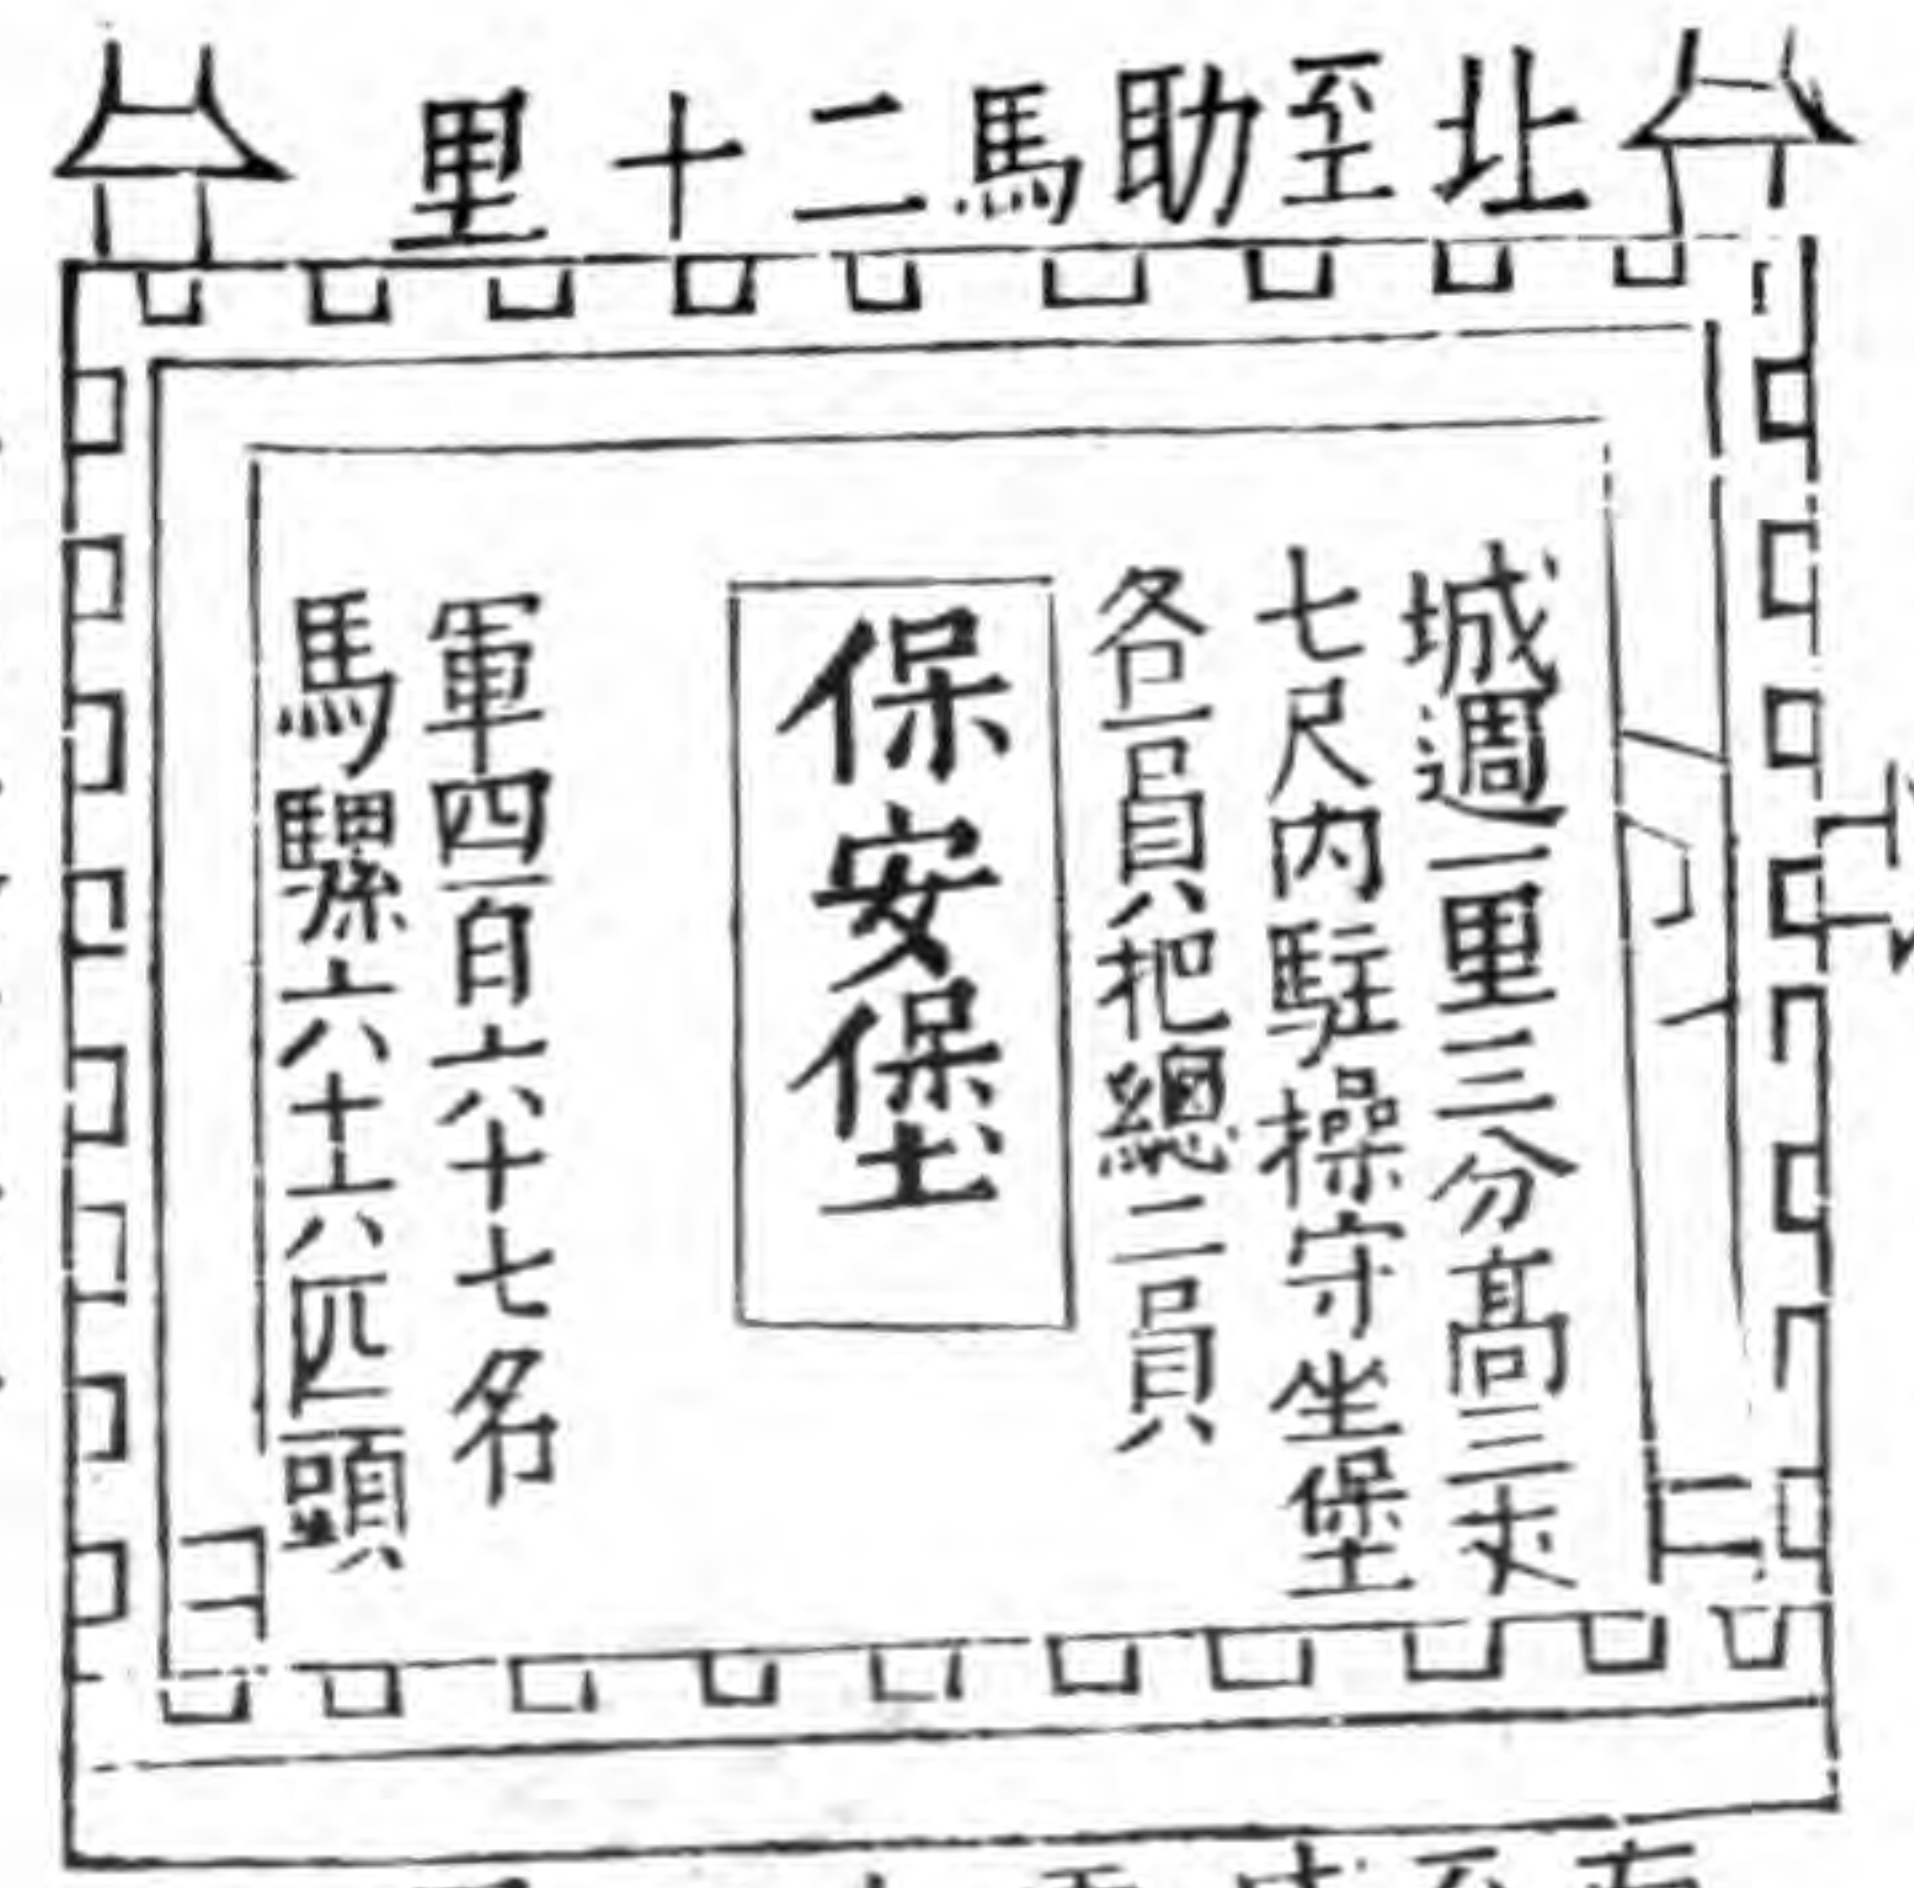 北至助馬二十里
城週一里三分高三丈
七尺內駐操守坐堡
各一員把總二員
保安堡
軍四百六十七名
馬騾六十六匹頭